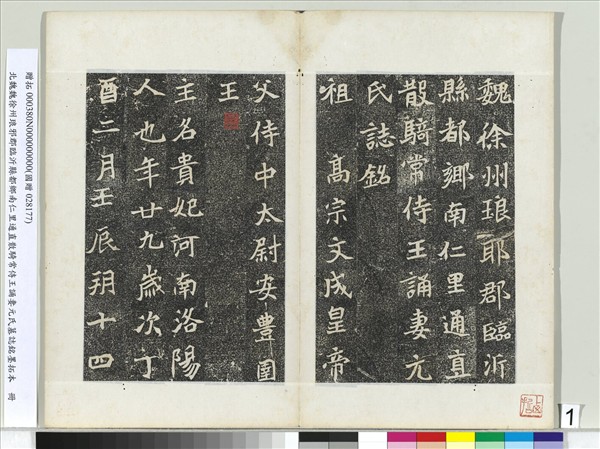 魏徐州琅耶郡臨沂
縣都鄉南仁里通直
散騎常侍王誦妻元
氏誌銘
祖 高宗文成皇帝
父侍中太尉安豐圉
王
主名貴妃河南洛陽
人也年廿九歲次丁
酉三月壬辰朔十四
贈拓 000380N000000000(國贈 028177)
北魏魏徐州琅邪郡臨沂縣都鄉南仁里通直散騎常侍王誦妻元氏墓誌銘墨拓本 冊
1